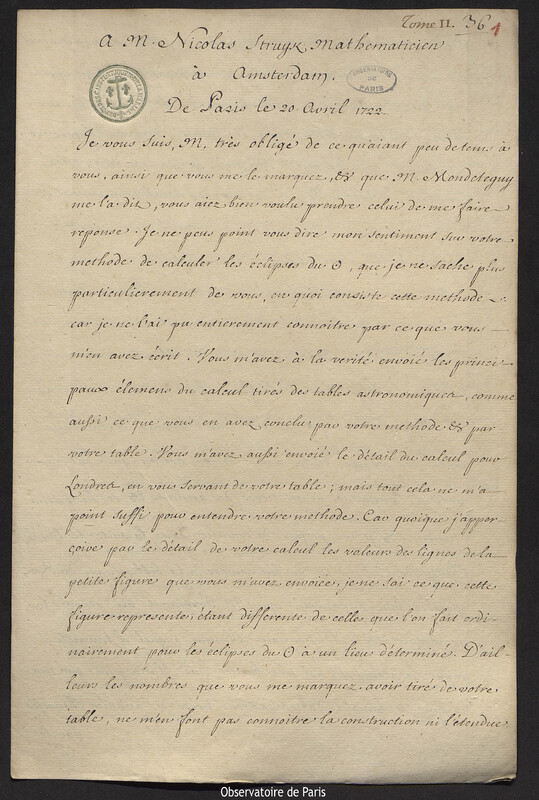 Tome II. 36 1
A M. Nicolas Struyk Mathematicien
à Amsterdam.
OBSERVATOIRE DE PARIS
De Paris le 20 Avril 1722
Je vous suis, M. très obligé de ce qu'aiant peu de tems à
vous, ainsi que vous me le marquez, & que M. Mondeleguy
me l'a dit, vous aiez bien voulu prendre celui de me faire
reponse. Je ne peus point vous dire mon sentiment sur votre
methode de calculer les éclipses du ☉, que je ne sache plus
particulierement de vous, en quoi consiste cette methode
car je ne l'ai pu entierement connoitre par ce que vous
m'en avez écrit. Vous m'avez à la verité envoié les princi-
paux élemens du calcul tirés des tables astronomiques, comme
aussi ce que vous en avez conclu par votre methode & par
votre table. Vous m'avez aussi envoié le détail du calcul pour
Londres, en vous servant de votre table; mais tout cela ne m'a
point suffi pour entendre votre methode. Car quoique j'apper-
çoive par le détail de votre calcul les valeurs des lignes de la
petite figure que vous m'avez envoiée, je ne sai ce que cette
figure represente, étant differente de celles que l'on fait ordi-
nairement pour les éclipses du ☉ à un lieu déterminé. D'ail-
leurs les nombres que vous me marquez avoir tiré de votre
table, ne m'en font pas connoitre la construction ni l'étendue.
Observatoire de Paris